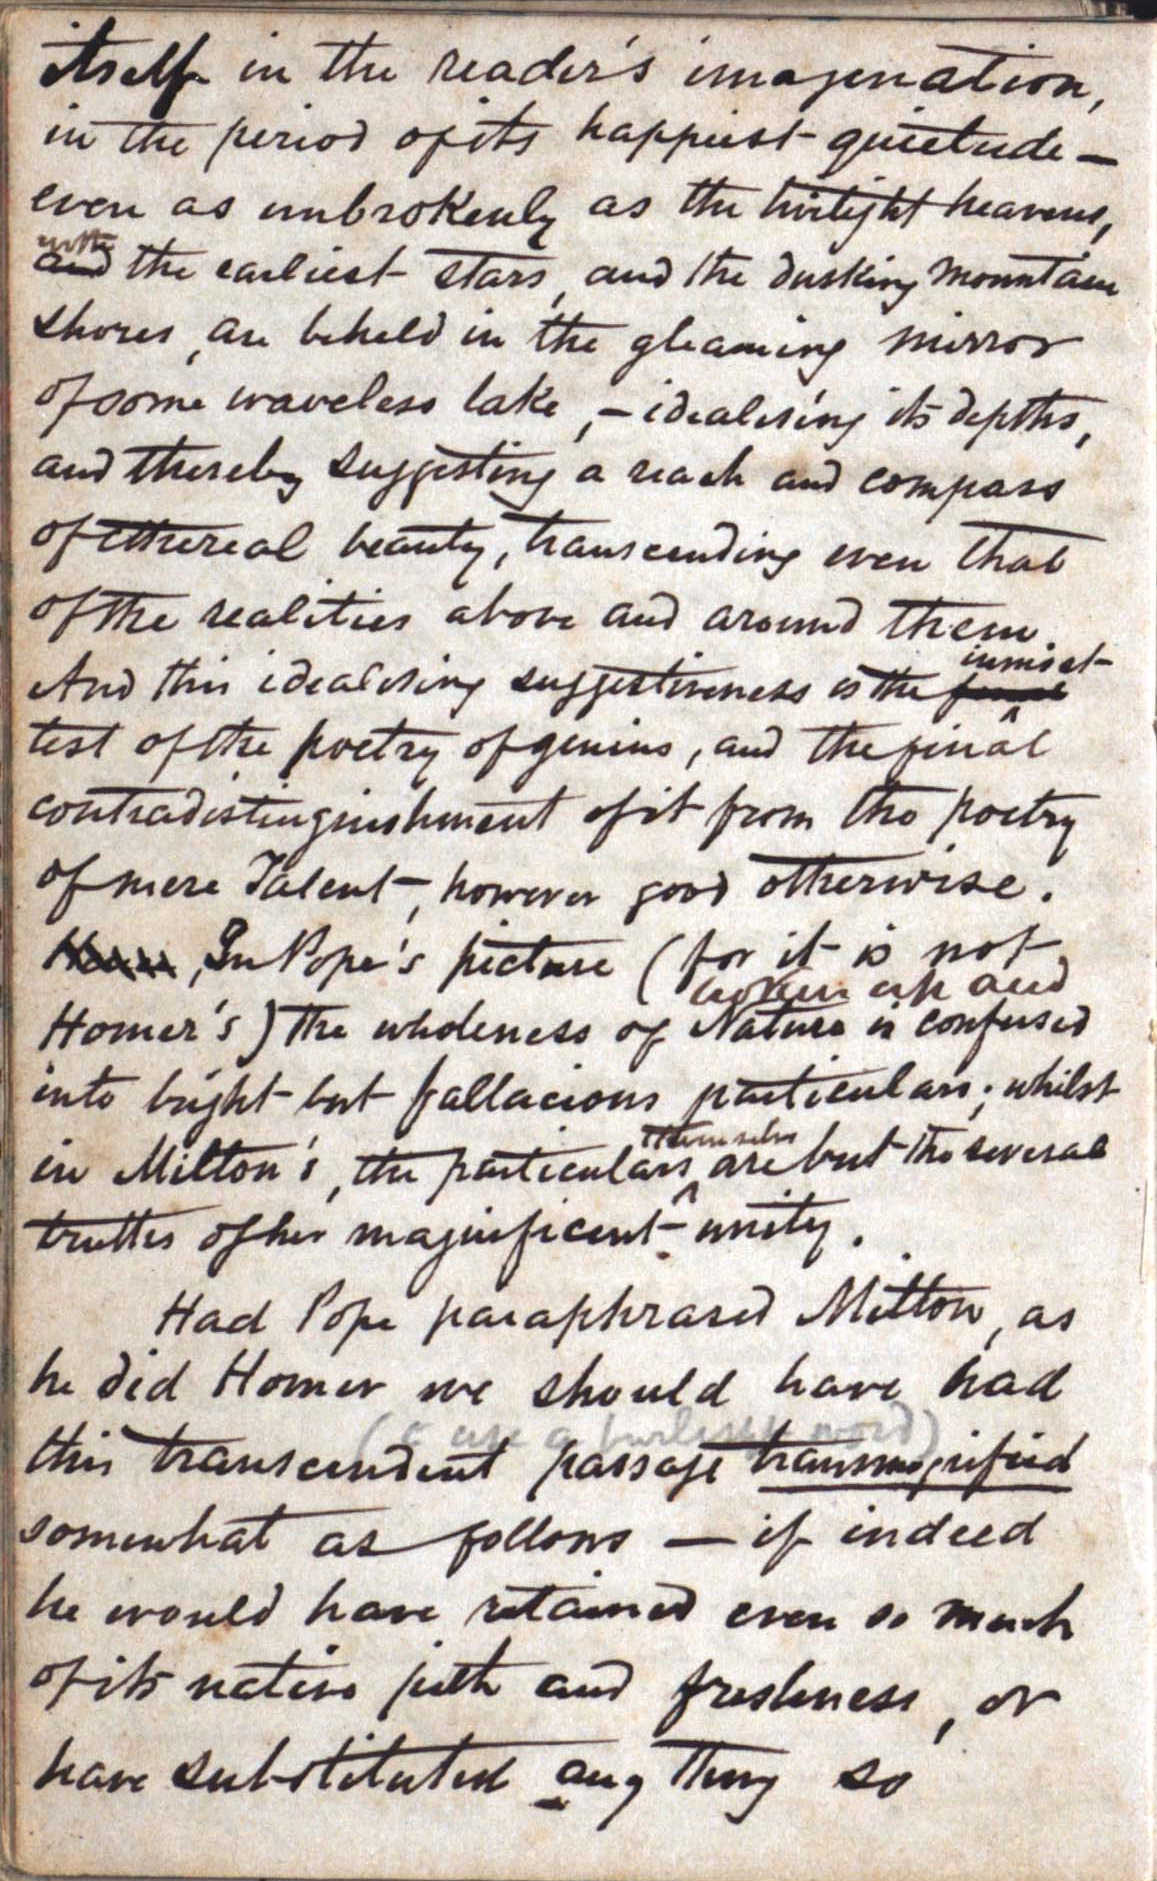 itself in the reader's imagination,
in the period of its happiest quietude —
even as unbrokenly as the twilight heavens,
with
and the earliest stars, and the dusking mountain
shores, are beheld in the gleaming mirror
of some waveless lake, — idealising its depths,
and thereby suggesting a reach and compass
of ethereal beauty, transcending even that
of the realities above and around them.
inmost
And this idealising suggestiveness is the final
test of the poetry of genius, and the final
contradistinguishment of it from the poetry
of mere Talent, however good otherwise.
In Pope's picture (for it is not
broken up and
Homer's) the wholeness of Nature is confused
into bright but fallacious particulars; whilst
themselves
in Milton's, the particulars are but the several
truths of her magnificent unity.
Had Pope paraphrased Milton, as
he did Homer we should have had
(to use a burlesque word)
this transcendent passage transmogrified
somewhat as follows — if indeed
he would have retained even so much
of its native pith and freshness, or
have substituted any thing so